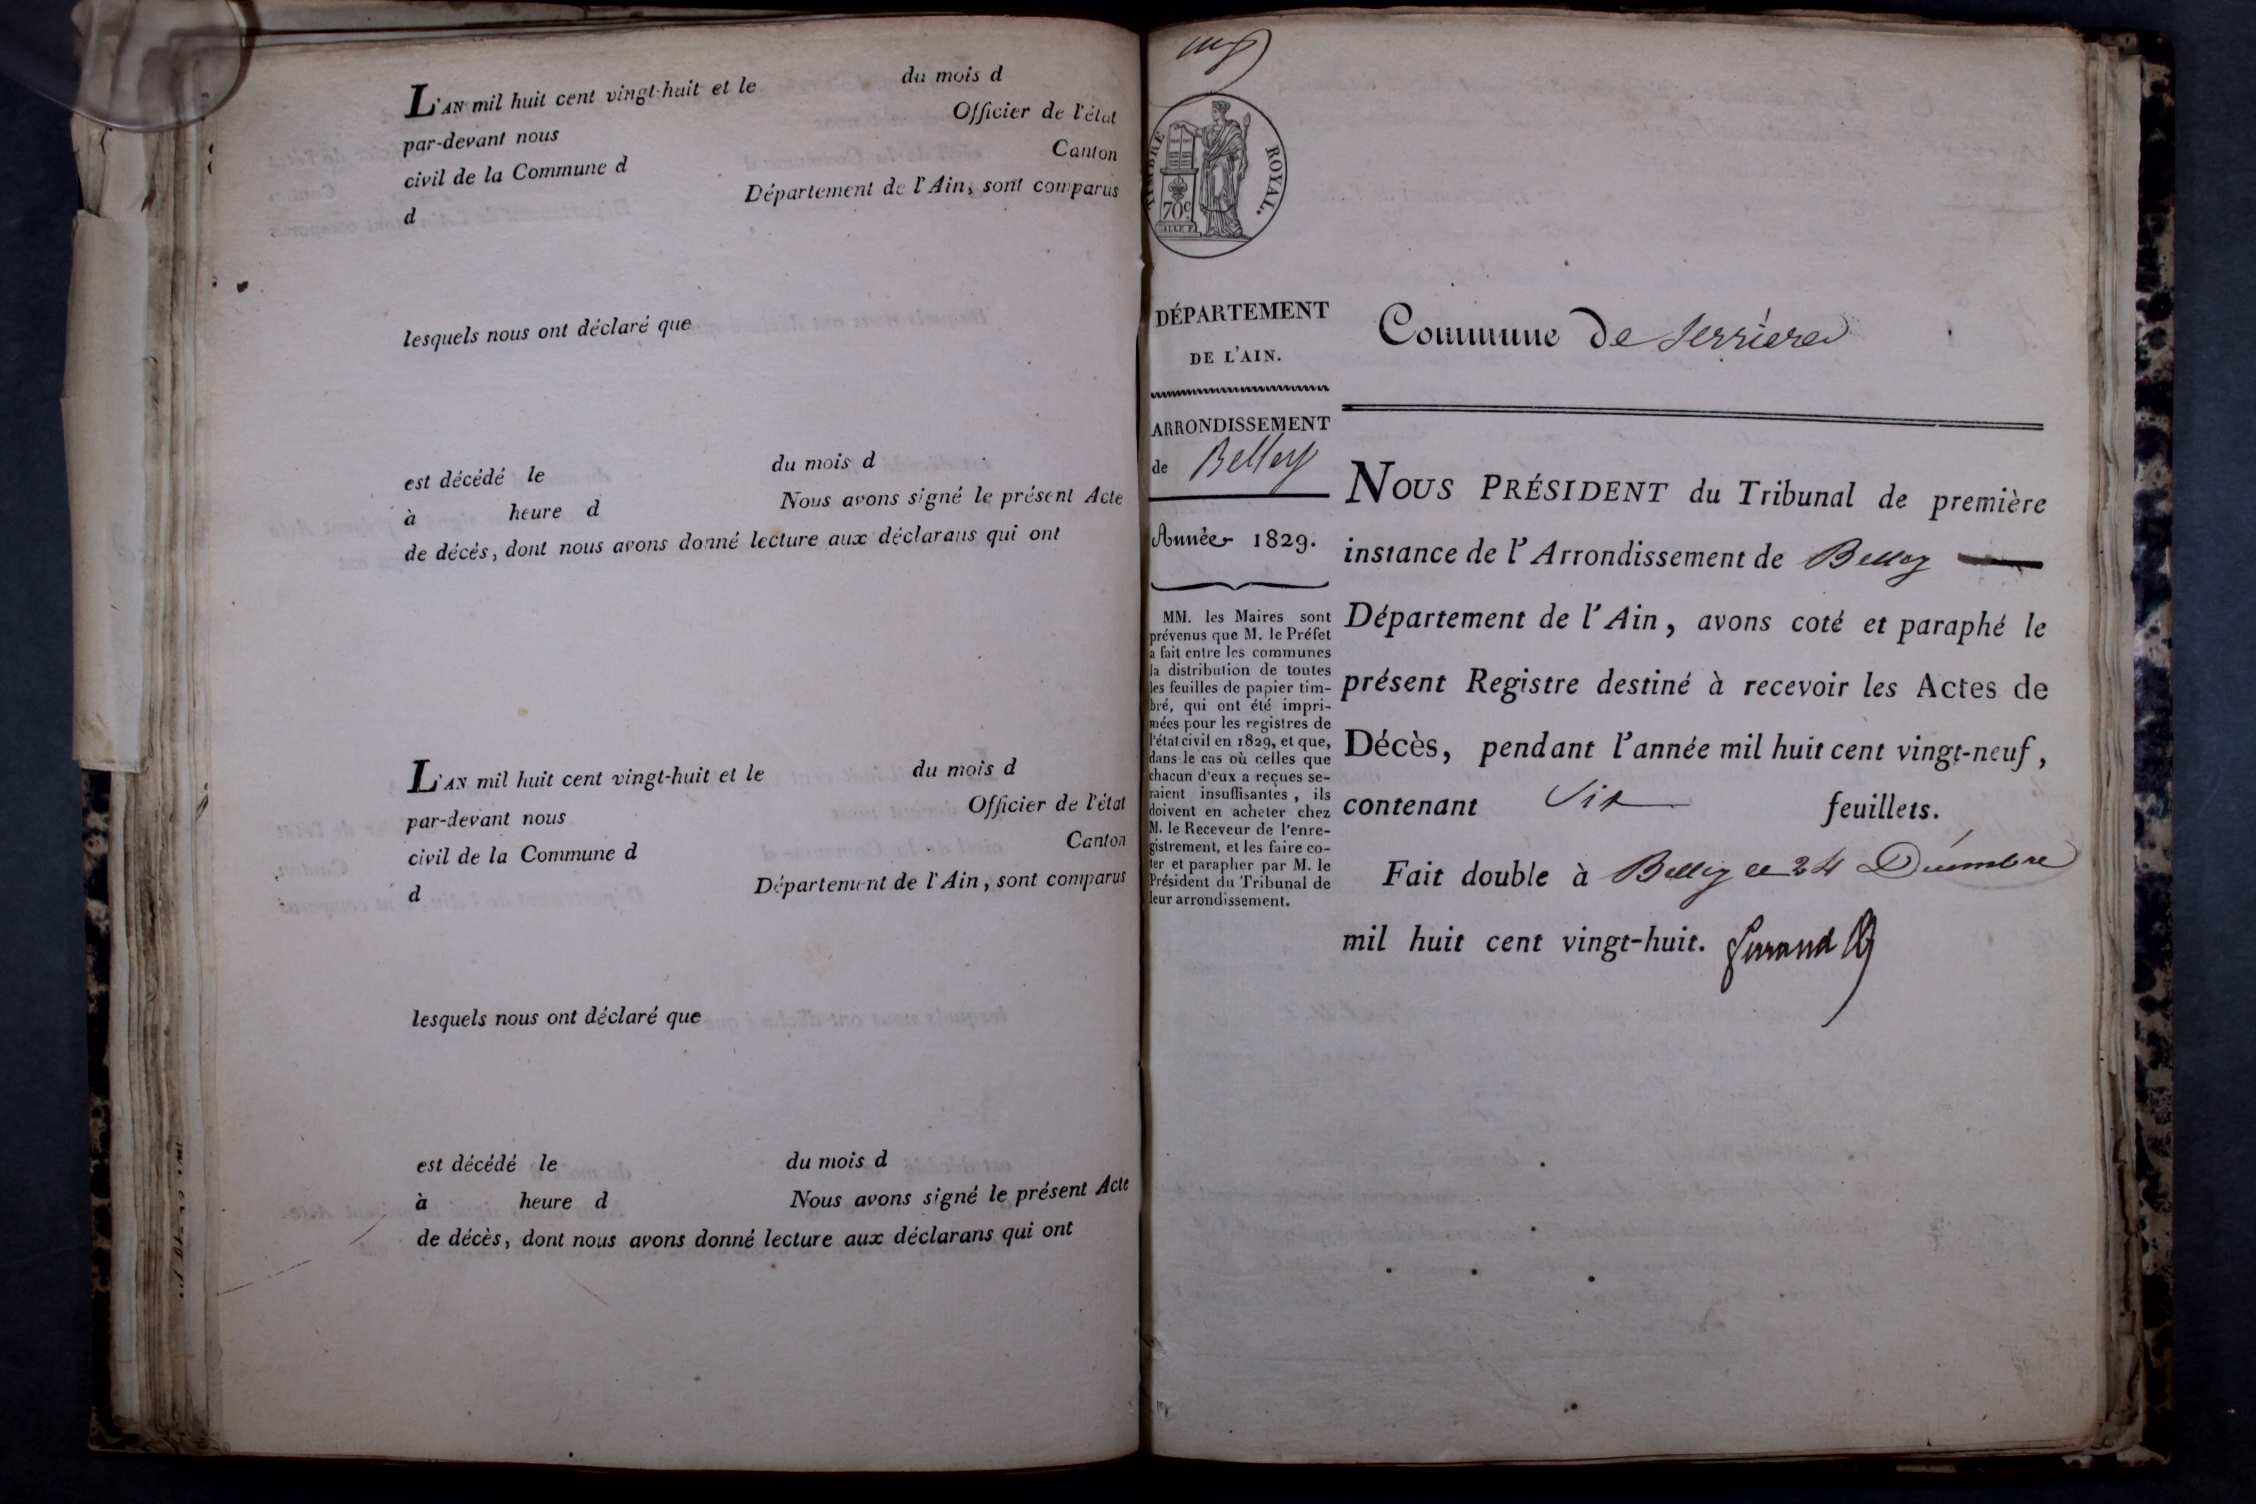 L'AN mil huit cent vingt-huit et le du mois d
par-devant nous Officier de l'état
civil de la Commune d Canton
d Département de l'Ain, sont comparus
lesquels nous ont déclaré que
est décédé le du mois d
à heure d Nous avons signé le présent Acte
de décès, dont nous avons donné lecture aux déclarans qui ont
L'AN mil huit cent vingt-huit et le du mois d
par-devant nous Officier de l'état
civil de la Commune d Canton
d Département de l'Ain, sont comparus
lesquels nous ont déclaré que
est décédé le du mois d
à heure d Nous avons signé le présent Acte
de décès, dont nous avons donné lecture aux déclarans qui ont
TIMBRE ROYAL.
70c
DÉPARTEMENT
DE L'AIN.
ARRONDISSEMENT
de Belley
Année 1829.
MM. les Maires sont
prévenus que M. le Préfet
a fait entre les communes
la distribution de toutes
les feuilles de papier tim-
bré, qui ont été impri-
mées pour les registres de
l'état civil en 1829, et que,
dans le cas où celles que
chacun d'eux a reçues se-
raient insuffisantes, ils
doivent en acheter chez
M. le Receveur de l'enre-
gistrement, et les faire co-
ter et parapher par M. le
Président du Tribunal de
leur arrondissement.
Commune de Serrieres
NOUS PRÉSIDENT du Tribunal de première
instance de l'Arrondissement de Belley
Département de l'Ain, avons coté et paraphé le
présent Registre destiné à recevoir les Actes de
Décès, pendant l'année mil huit cent vingt-neuf,
contenant Six feuillets.
Fait double à Belley le 24 Décembre
mil huit cent vingt-huit.